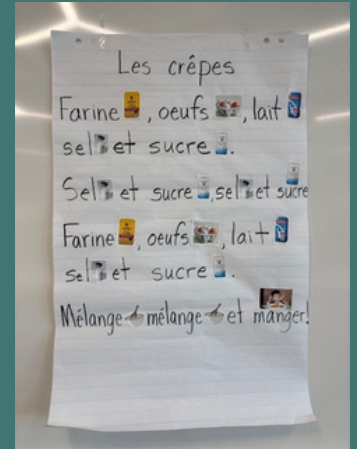 Les crêpes
Farine, oeufs, lait
sel et sucre.
Sel et sucre, sel et sucre
Farine, oeufs, lait
sel et sucre.
Mélange mélange et manger!